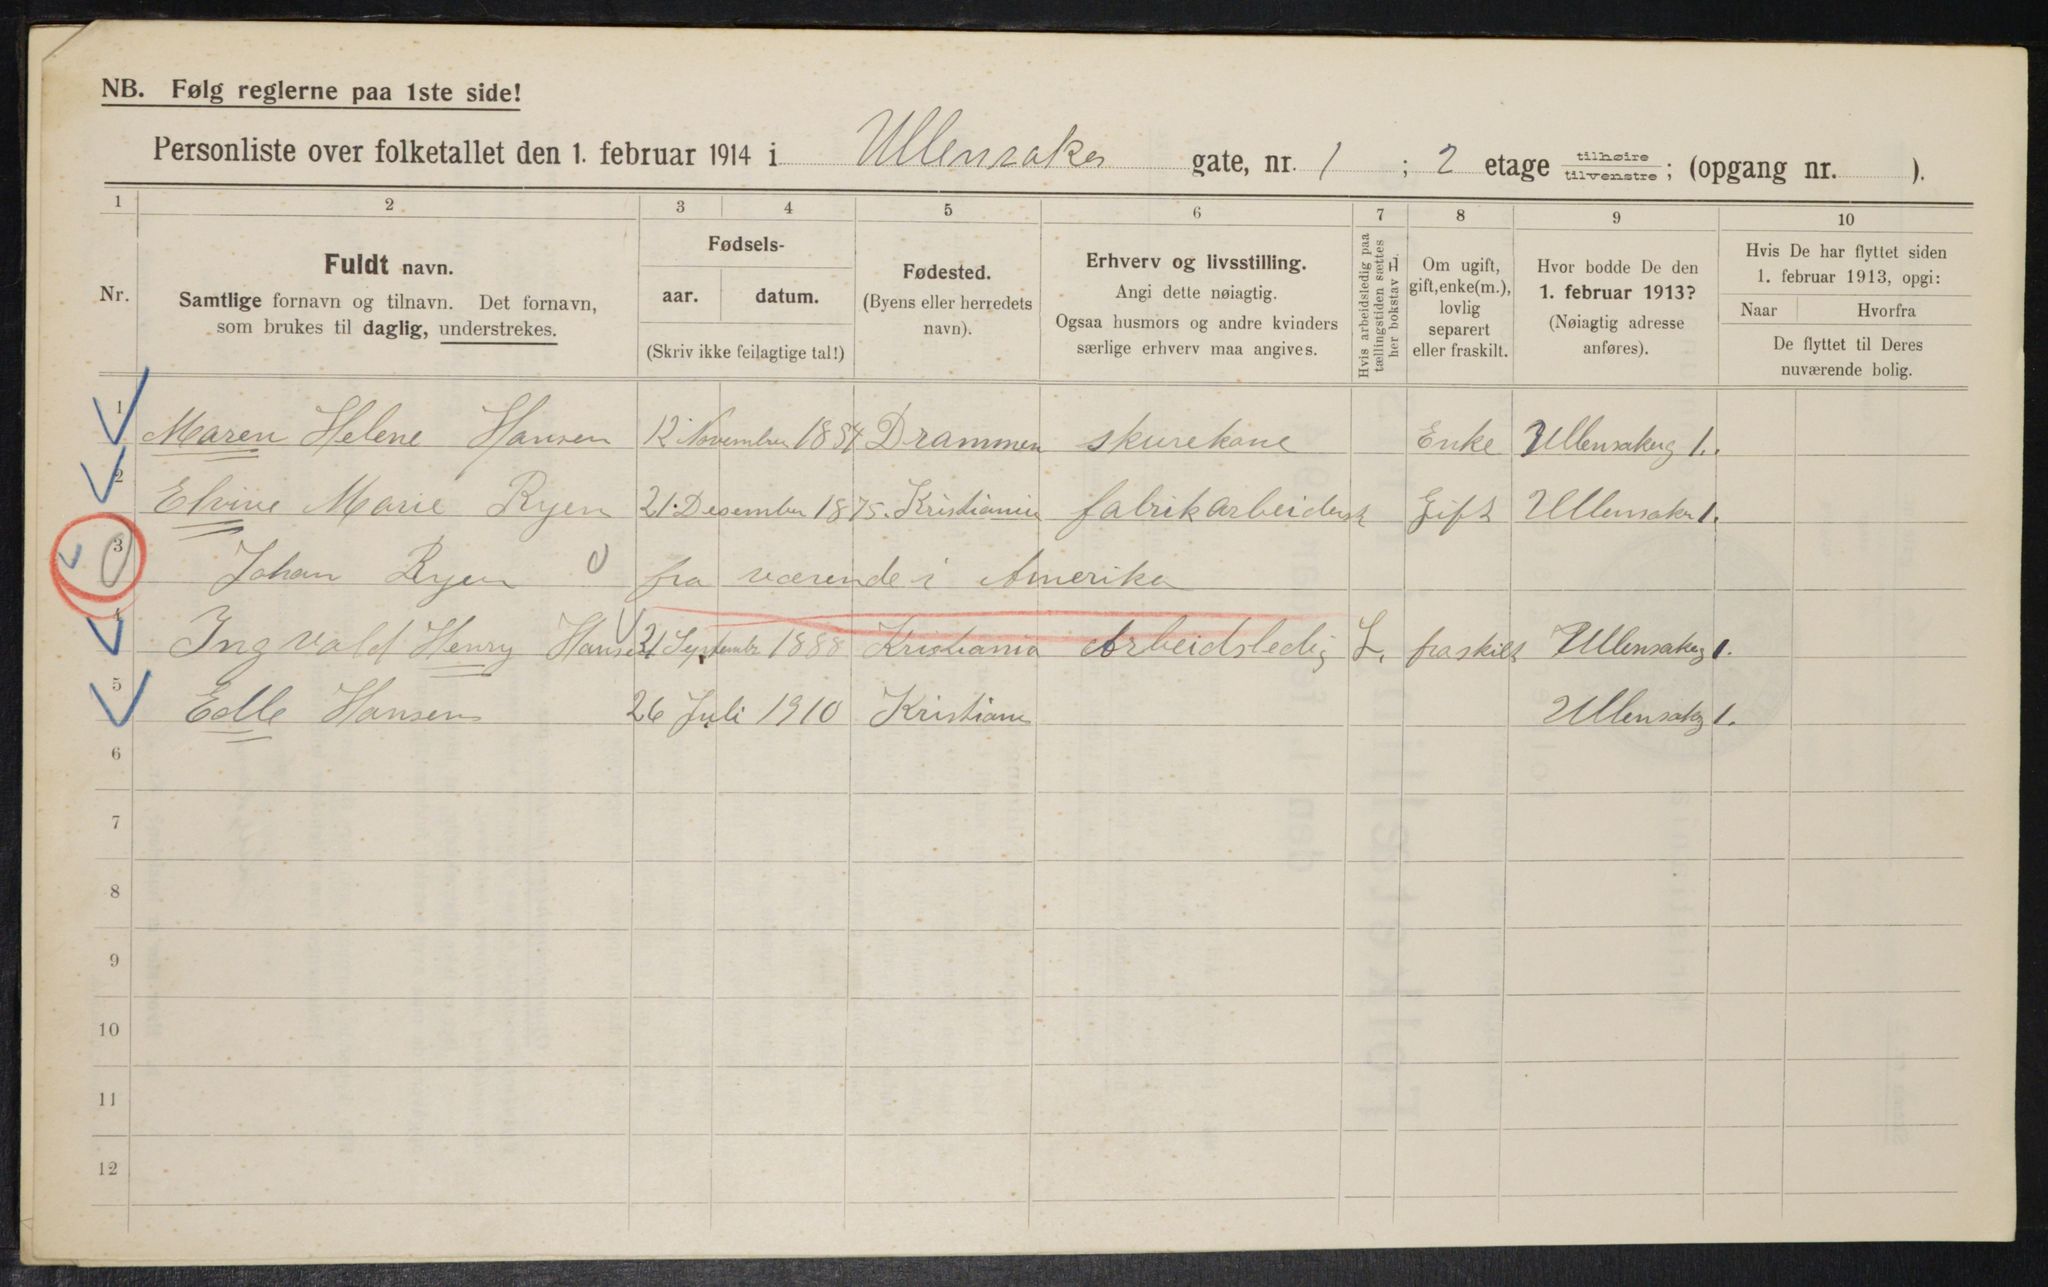 NB. Følg reglerne paa 1ste side!
Personliste over folketallet den 1. februar 1914 i Ullensaker gate, nr. 1 ; 2 etage tilhøire tilvenstre ; (opgang nr. ).
1 2 3 4 5 6 7 8 9 10
Nr.
Fuldt navn.
Samtlige fornavn og tilnavn. Det fornavn,
som brukes til daglig, understrekes.
Fødsels-
aar. datum.
(Skriv ikke feilagtige tal!)
Fødested.
(Byens eller herredets
navn).
Erhverv og livsstilling.
Angi dette nøiagtig.
Ogsaa husmors og andre kvinders
særlige erhverv maa angives.
Hvis arbeidsledig paa
tællingstiden sættes
her bokstav L.
Om ugift,
gift, enke(m.),
lovlig
separert
eller fraskilt.
Hvor bodde De den
1. februar 1913?
(Nøiagtig adresse
anføres).
Hvis De har flyttet siden
1. februar 1913, opgi:
Naar Hvorfra
De flyttet til Deres
nuværende bolig.
1 Maren Helene Hansen 12 November 1854 Drammen skurekone Enke Ullensakerg 1.
2 Elvine Marie Ryen 21. Desember 1875. Kristiania fabrikarbeidersk Gift Ullensaker 1.
3 Johan Ryen fra værende i Amerika
4 Ingvald Henry Hansen 21 September 1888 Kristiania Arbeidsledig L. fraskilt Ullensakerg 1.
5 Edle Hansen 26 Juli 1910 Kristiania Ullensakerg 1.
6
7
8
9
10
11
12